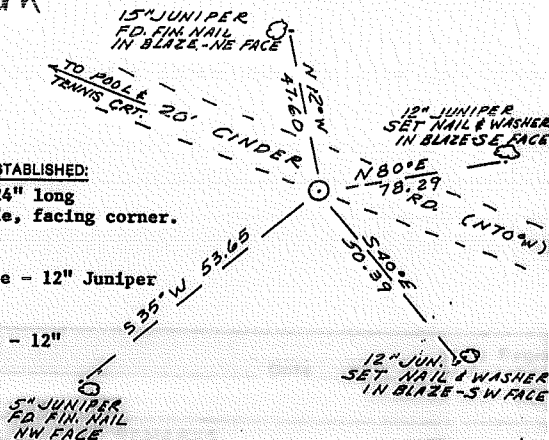 15" JUNIPER
FD. FIN. NAIL
IN BLAZE-NE FACE
N 12° W
47.60
TO POOL &
TENNIS CRT.
20' CINDER
RD.
(N70°W)
12" JUNIPER
SET NAIL & WASHER
IN BLAZE-SE FACE
N 80° E
78.29
STABLISHED:
24" long
e, facing corner.
e - 12" Juniper
- 12"
S 35° W 53.65
S 40° E
50.39
12" JUN.
SET NAIL & WASHER
IN BLAZE-SW FACE
5" JUNIPER
FD. FIN. NAIL
NW FACE